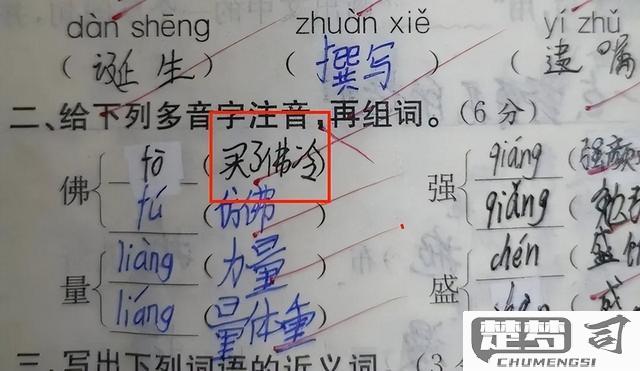 dàn shēng zhuàn xiě yí zhǔ
(诞生) (撰写) (遗嘱
二、给下列多音字注音,再组词。(6分)
fó (买了佛冷) qiáng (强颜
佛 强
fú (仿佛) qiǎng (
liàng (力量) chén (盛
量 盛
liáng (量体重)
三、写出下列词语的近义词。(3分
楚梦司
CHUMENGSI